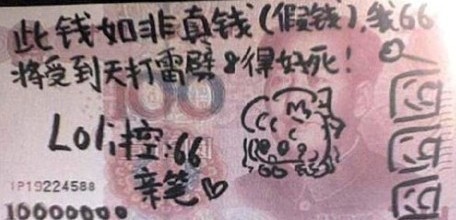 此钱如非真钱(假钱),我66
将受到天打雷劈8得好死!
Loli控:66
亲笔
100
IP19224588
10000000
囧
囧
囧